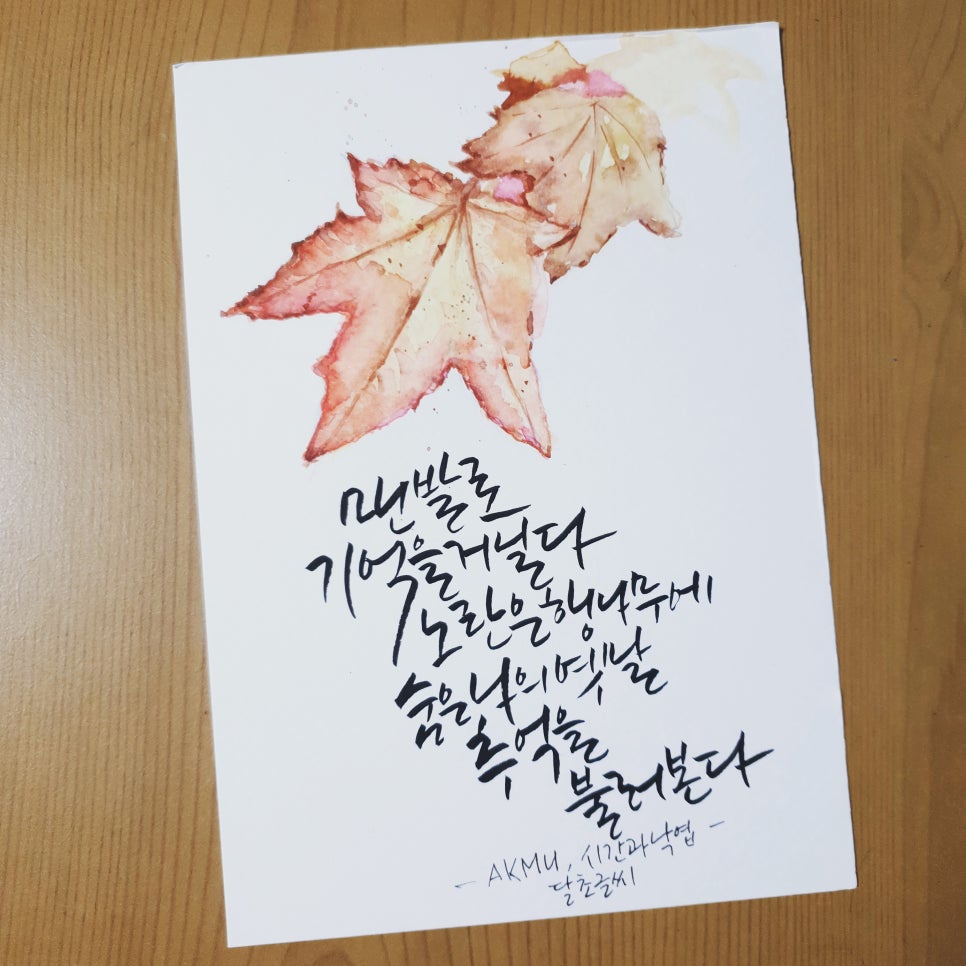 맨발로
기억을거닐다
노란은행나무에
숨은나의옛날
추억을
불러본다
- AKMU, 시간과낙엽 -
달초글씨